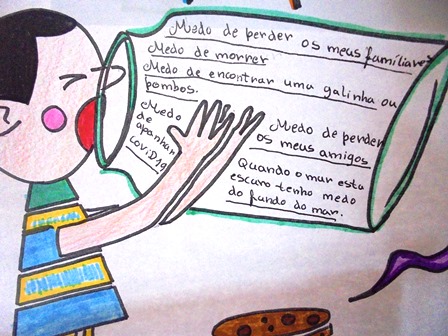 Medo de perder os meus famíliares
Medo de morrer
Medo de encontrar uma galinha ou
pombos.
Medo
de
apanhar
COVID19
Medo de perder
os meus amigos
Quando o mar esta
escuro tenho medo
do fundo do mar.